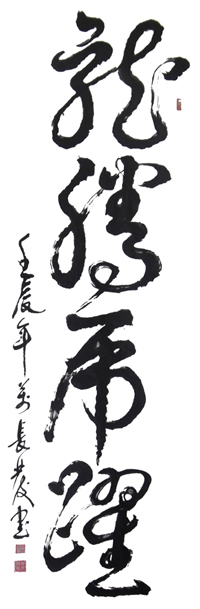 龍騰虎躍
壬辰年萬長發書